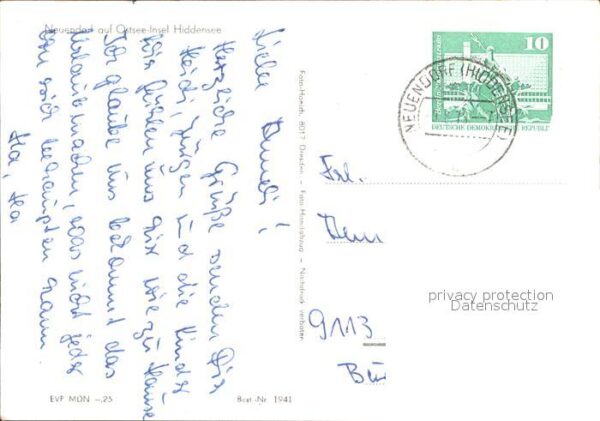 Neuendorf auf Ostsee-Insel Hiddensee
Liebe
Herzliche Grüße senden Dir
Heidi, Jürgen und die Kinder
Wir fühlen uns hier wie zu Hause
Ich glaube uns bekommt das
Urlaubmachen, was nicht jeder
von sich behaupten kann.
Ha, ha
EVP MDN -,25
Best.-Nr. 1941
Foto-Homich, 8017 Dresden - Foto-Handabzug - Nachdruck verboten
10
DEUTSCHE DEMOKRATISCHE REPUBLIK
NEUENDORF (HIDDENSEE)
Frl.
9113
privacy protection
Datenschutz